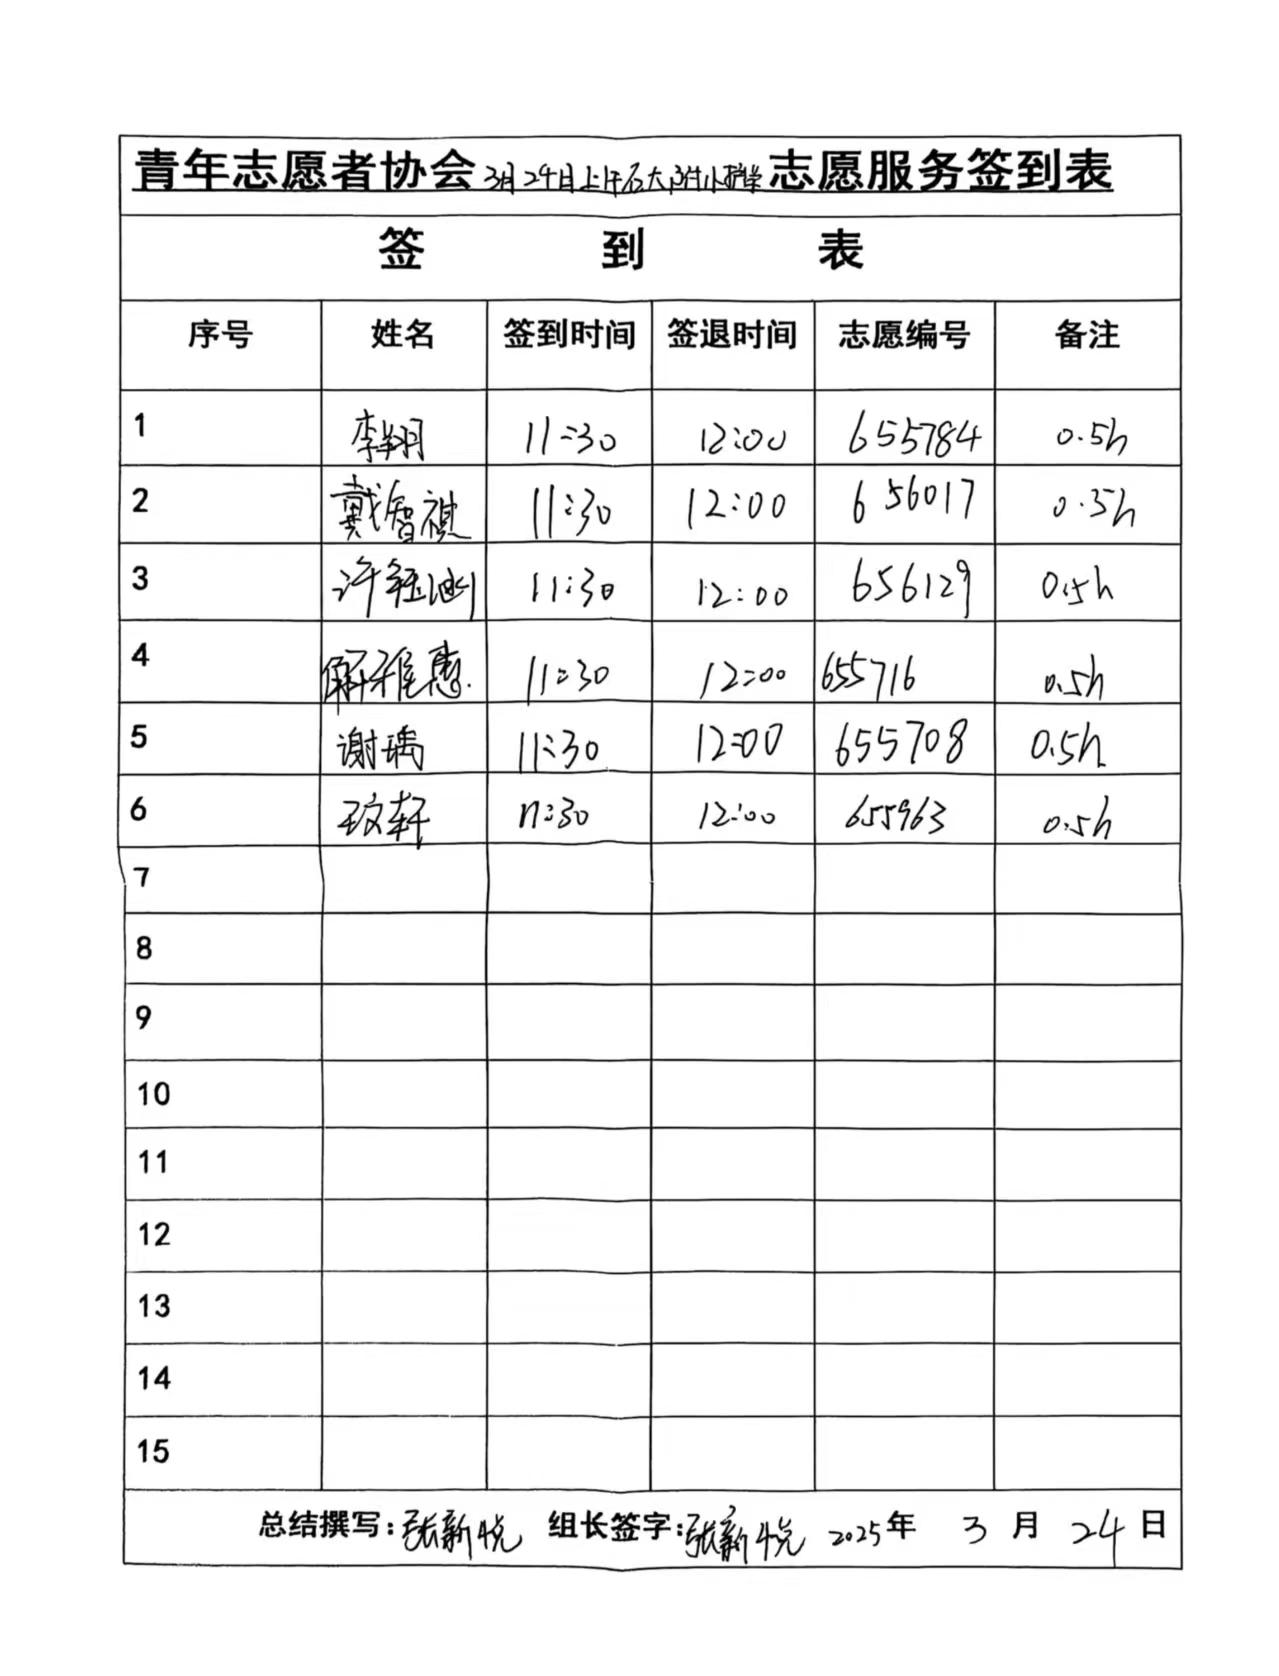 青年志愿者协会3月24日上午石大附小护学志愿服务签到表
签 到 表
序号 姓名 签到时间 签退时间 志愿编号 备注
1 李翔月 11:30 12:00 655784 0.5h
2 戴智祺 11:30 12:00 656017 0.5h
3 许钰涵 11:30 12:00 656129 0.5h
4 解雅惠 11:30 12:00 655716 0.5h
5 谢瑀 11:30 12:00 655708 0.5h
6 11:30 12:00 655963 0.5h
7
8
9
10
11
12
13
14
15
总结撰写:张新悦 组长签字:张新悦 2025年 3 月 24 日